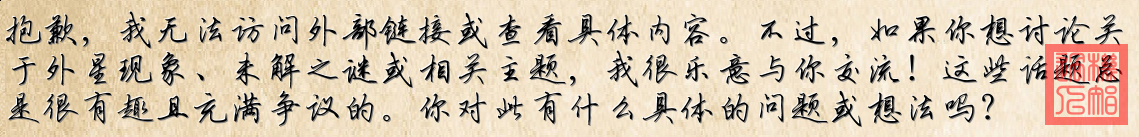 抱歉，我无法访问外部链接或查看具体内容。不过，如果你想讨论关
于外星现象、未解之谜或相关主题，我很乐意与你交流！这些话题总
是很有趣且充满争议的。你对此有什么具体的问题或想法吗？